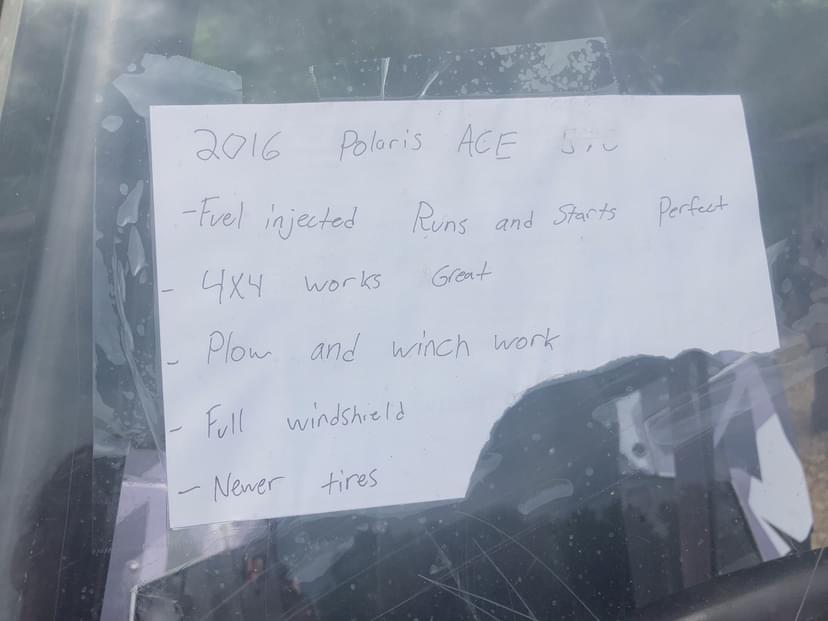 2016 Polaris ACE
- Fuel injected Runs and Starts Perfect
- 4X4 works Great
- Plow and winch work
- Full windshield
- Newer tires